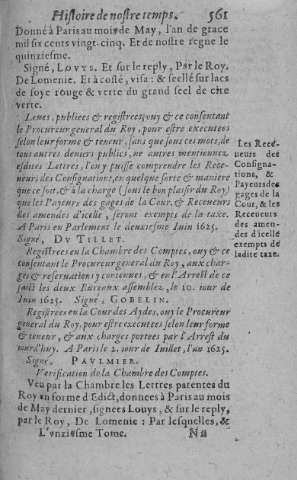 Histoire de nostre temps. 561
Donné à Paris au mois de May, l'an de grace
mil six cents vingt-cinq. Et de nostre regne le
quinziesme.
Signé, LOVYS. Et sur le reply, Par le Roy.
De Lomenie. Et à costé, visa: & seellé sur lacs
de soye rouge & verte du grand seel de cire
verte.
Leuës, publiées & registrées, ouy & ce consentant
le Procureur general du Roy, pour estre executées
selon leur forme & teneur, sans que sous ces mots, de
tous autres deniers publics, ne autres mentionnez
esdites Lettres, l'on puisse comprendre les Rece-
ueurs des Consignations, en quelque sorte & maniere
que ce soit, & à la charge (sous le bon plaisir du Roy)
que les Payeurs des gages de la Cour, & Receueurs
des amendes d'icelle, seront exempts de la taxe.
A Paris en Parlement le deuxiesme Iuin 1625.
Signé, DV TILLET.
Registrees en la Chambre des Comptes, ouy & ce
consentant le Procureur general du Roy, aux char-
ges & reseruations y contenues, & en l'Arrest de ce
fait les deux Bureaux assemblez, le 10. iour de
Iuin 1625. Signé, GOBELIN.
Registrées en la Cour des Aydes, ouy le Procureur
general du Roy, pour estre executées selon leur forme
& teneur, & aux charges portees par l'Arrest du
iourd'huy. A Paris le 2. iour de Iuillet, l'an 1625.
Signé, PAVLMIER.
Verification de la Chambre des Comptes.
Veu par la Chambre les Lettres patentes du
Roy en forme d'Edict, données à Paris au mois
de May dernier, signées Louys, & sur le reply,
par le Roy, De Lomenie: Par lesquelles, &
L'vnziesme Tome. Nn
Les Rece-
ueurs des
Consigna-
tions, &
Payeurs des
gages de la
Cour, & les
Receueurs
des amen-
des d'icelle
exempts de
ladite taxe.